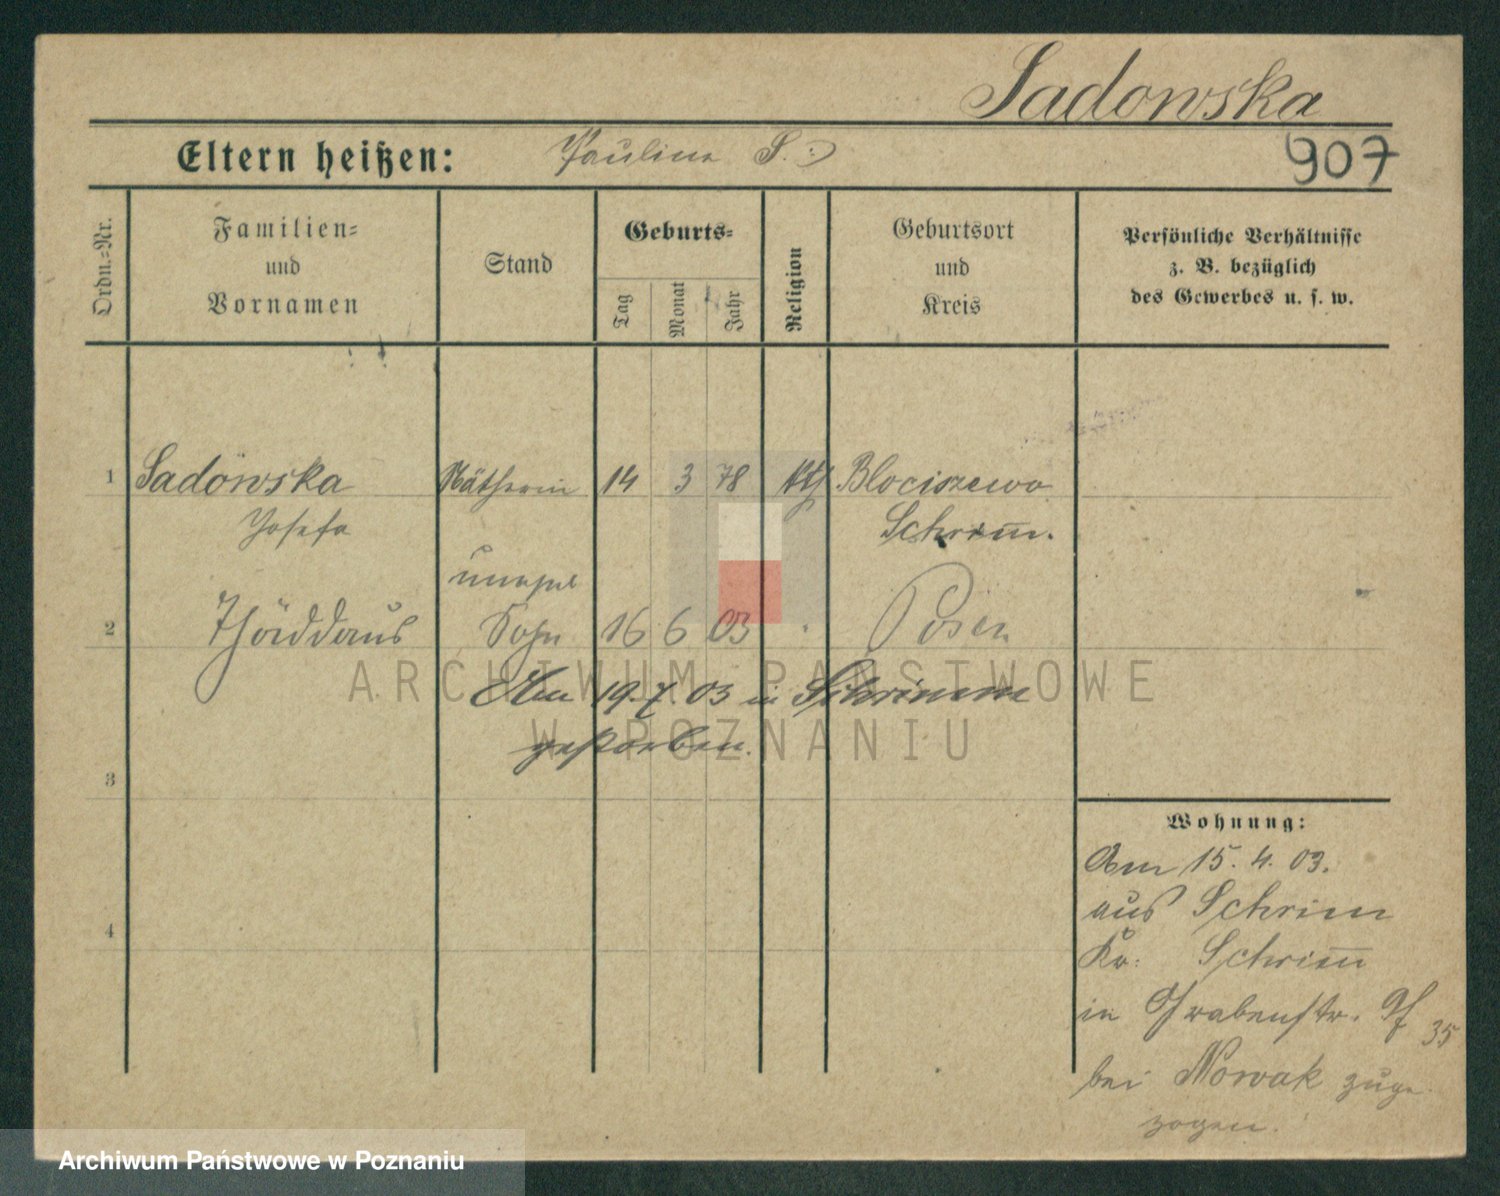 Sadowska
907
Eltern heißen: Paulina S. :)
Ordn.-Nr.
Familien-
und
Vornamen
Stand
Geburts-
Tag
Monat
Jahr
Religion
Geburtsort
und
Kreis
Persönliche Verhältnisse
z. B. bezüglich
des Gewerbes u. s. w.
1 Sadowska Nätherin 14 3 78 kth Blociszewo
Josefa Schrim̅.
unehel
2 Thäddäus Sohn 16 6 03 " Posen
Am 19.7.03 in Schrimm
gestorben.
3
4
Wohnung:
Am 15. 4. 03.
aus Schrim
Kr. Schrim̅
in Grabenstr. 35
bei Nowak zuge-
zogen.
ARCHIWUM PAŃSTWOWE
W POZNANIU
Archiwum Państwowe w Poznaniu